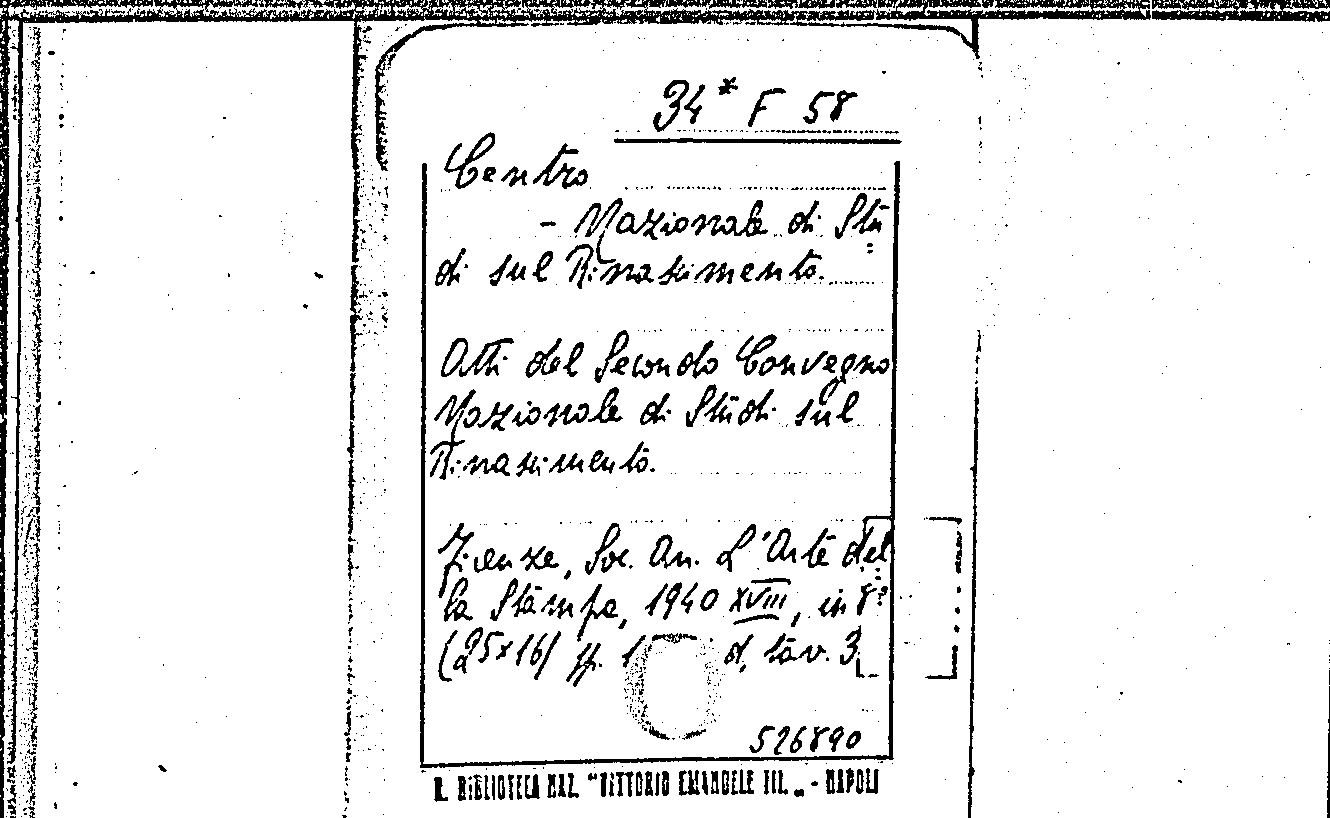 34* F 58
Centro
- Nazionale di Stu
di sul Rinascimento.
Atti del Secondo Convegno
Nazionale di Studi sul
Rinascimento.
Firenze, Soc. An. L'Arte del
la Stampa, 1940 XVIII, in 8º
(25x16) pp. d, tav. 3
526890
R. BIBLIOTECA NAZ. "VITTORIO EMANUELE III" - NAPOLI